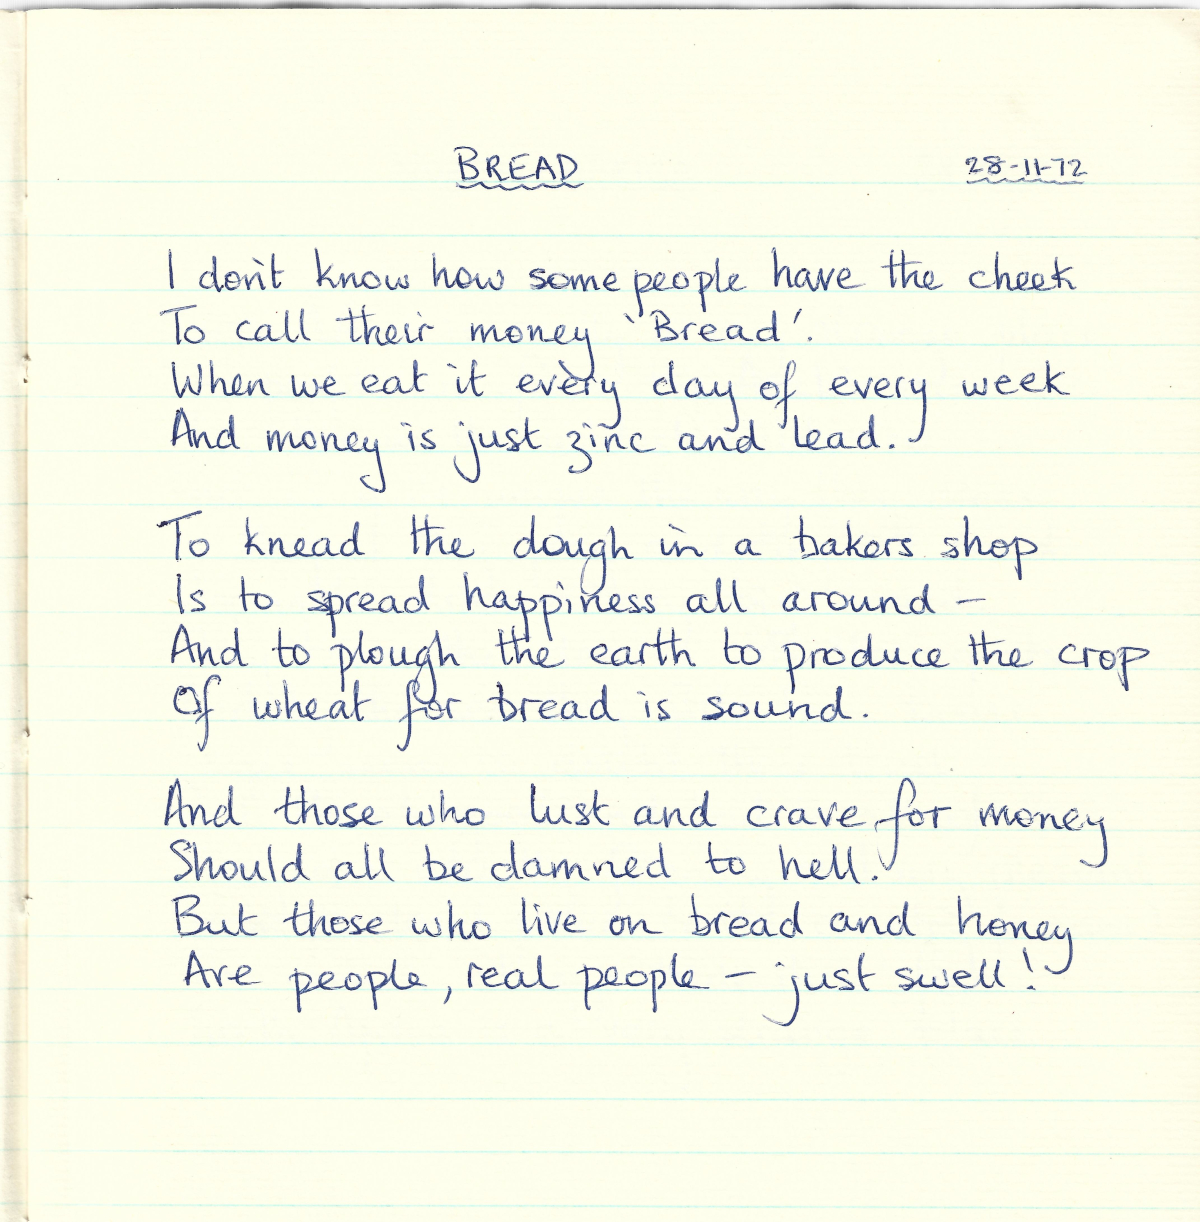 BREAD 28-11-72
I don't know how some people have the cheek
To call their money 'Bread'.
When we eat it every day of every week
And money is just zinc and lead.
To knead the dough in a bakers shop
Is to spread happiness all around –
And to plough the earth to produce the crop
Of wheat for bread is sound.
And those who lust and crave for money
Should all be damned to hell.
But those who live on bread and honey
Are people, real people – just swell!